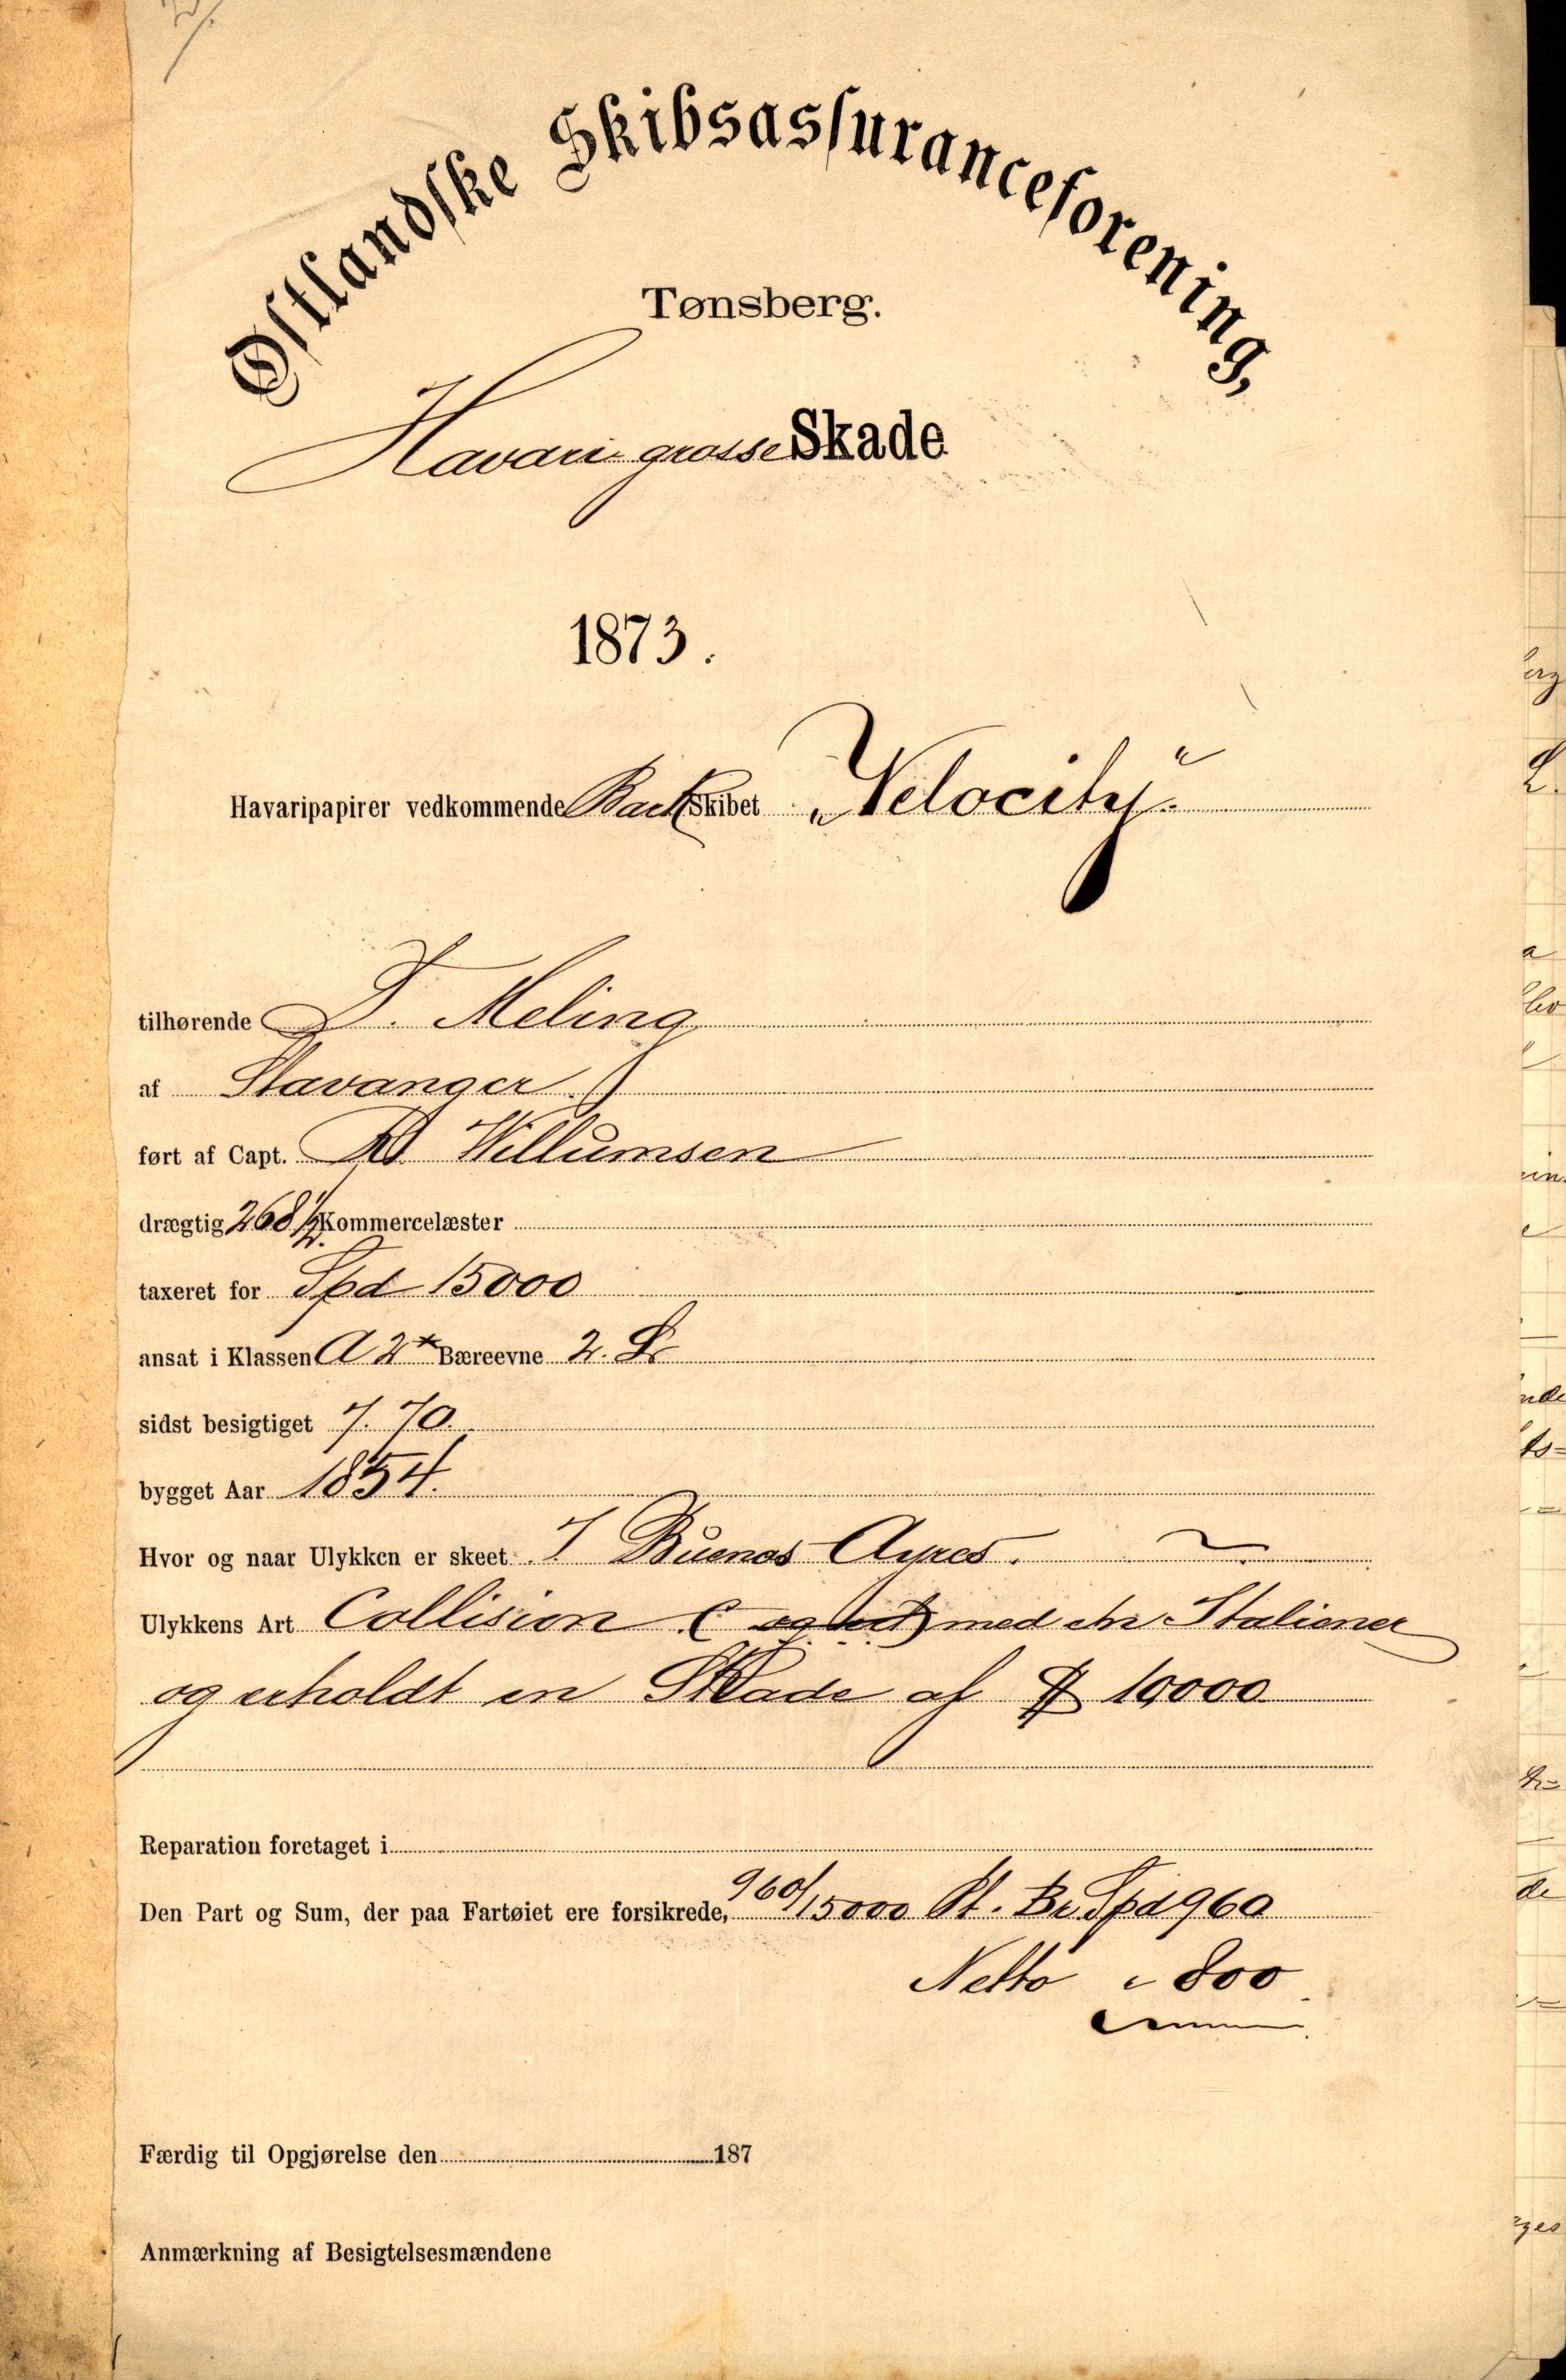 Østlandske Skibsassuranceforening,
Tønsberg.
Havari grosse Skade
1873.
Havaripapirer vedkommende Bark Skibet „Velocity“
tilhørende T. Meling
af Stavanger
ført af Capt. Willumsen
drægtig 268 1/2 Kommercelæster
taxeret for Spd 15000
ansat i Klassen A 2* Bæreevne 2.
sidst besigtiget 7. 70.
bygget Aar 1854.
Hvor og naar Ulykken er skeet I Buenos Ayres.
Ulykkens Art Collision med en Italiener
og erholdt en Skade af $ 10,000
Reparation foretaget i
Den Part og Sum, der paa Fartøiet ere forsikrede, 960/15000 Pt. Br. Spd 960
Netto " 800
Færdig til Opgjørelse den 187
Anmærkning af Besigtelsesmændene